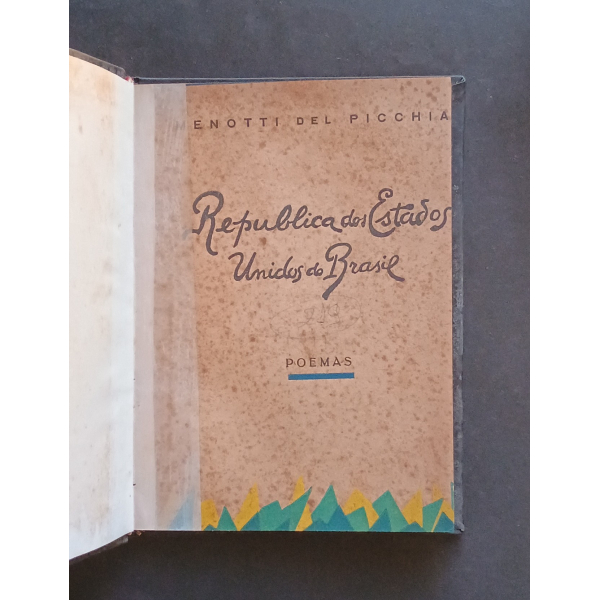 ENOTTI DEL PICCHIA
Republica dos Estados
Unidos do Brasil
POEMAS